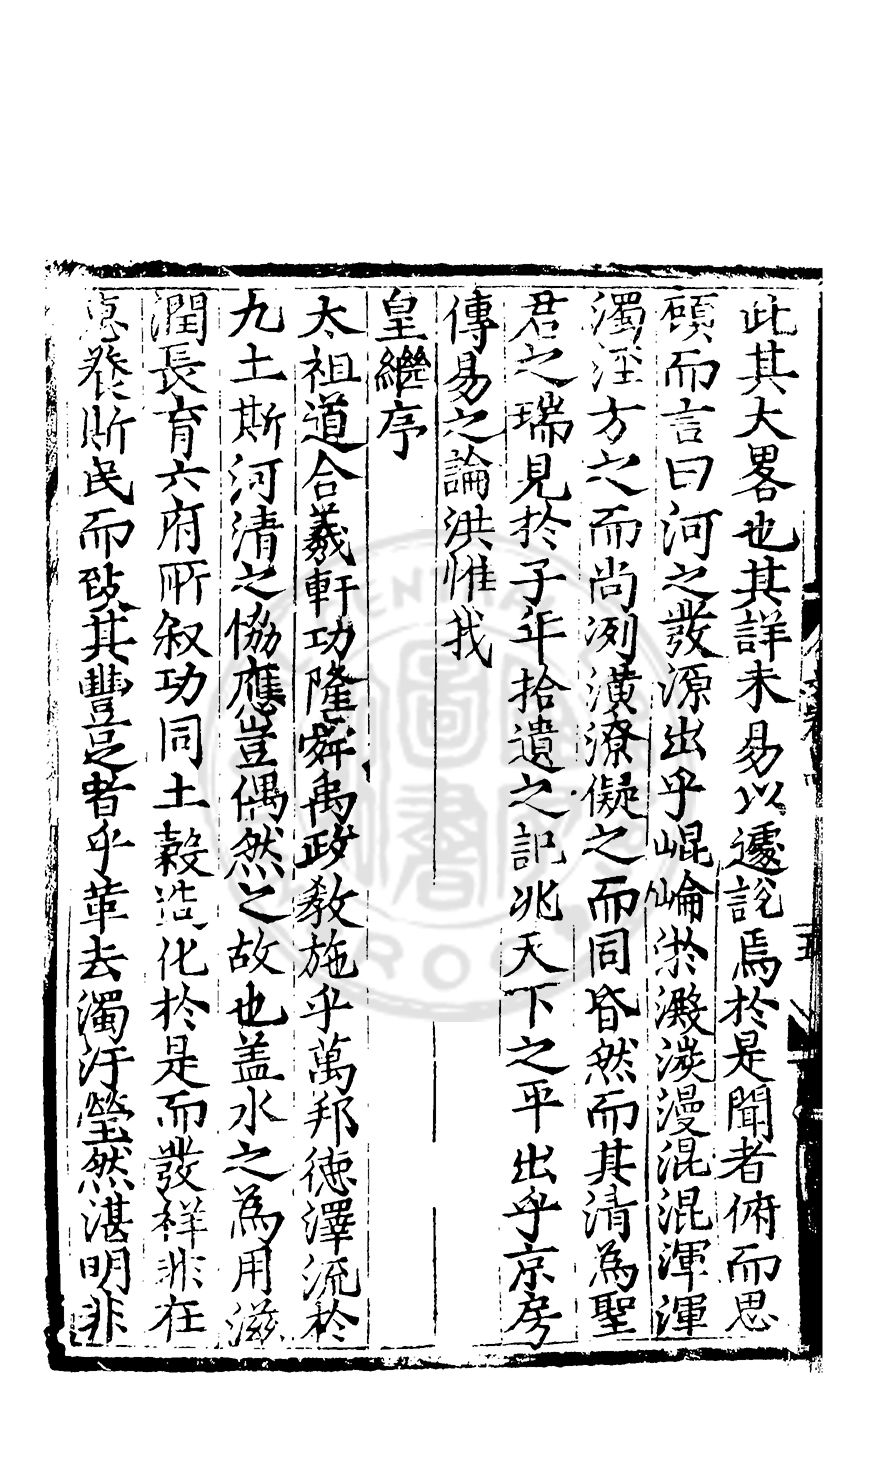 此其大畧也其詳未易以遽説焉於是聞者俯而思
頋而言曰河之發源出乎崐崘淤澱淡漫混混渾渾
濁涇方之而尚洌潢潦儗之而同昏然而其清為聖
君之瑞見於子年拾遺之記兆天下之平出乎京房
傳易之論洪惟我
皇繼序
太祖道合羲軒功隆舜禹政敎施乎萬邦德澤流於
九土斯河清之恊應豈偶然之故也盖水之為用滋
潤長育六府所叙功同土糓造化於是而發祥非在
惠養斯民而致其豐足者乎葷去濁汙瑩然湛明非
五